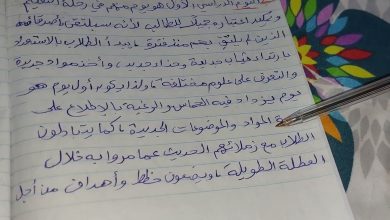 اليوم الدراسي الأول هو يوم مهم في رحلة التعليم
ويمكن اعتباره جيدًا للطالب لأنه سيلتقي بأصدقائه
الذين لم يلتقي بهم منذ فترة، يبدأ الطلاب بالاستعداد
بارتداء ثيابا جديدة وحذاء جديد، وأخذ مواد جديدة
والتعرف على علوم مختلفة، ولذا يكون أول يوم هو
يوم يزداد فيه الحماس والرغبة بالإطلاع على
المواد والموضوعات الجديدة، كما يتبادلون
الطلاب مع زملائهم الحديث عما مروا به خلال
العطلة الطويلة، ويضعون خطط وأهداف من أجل